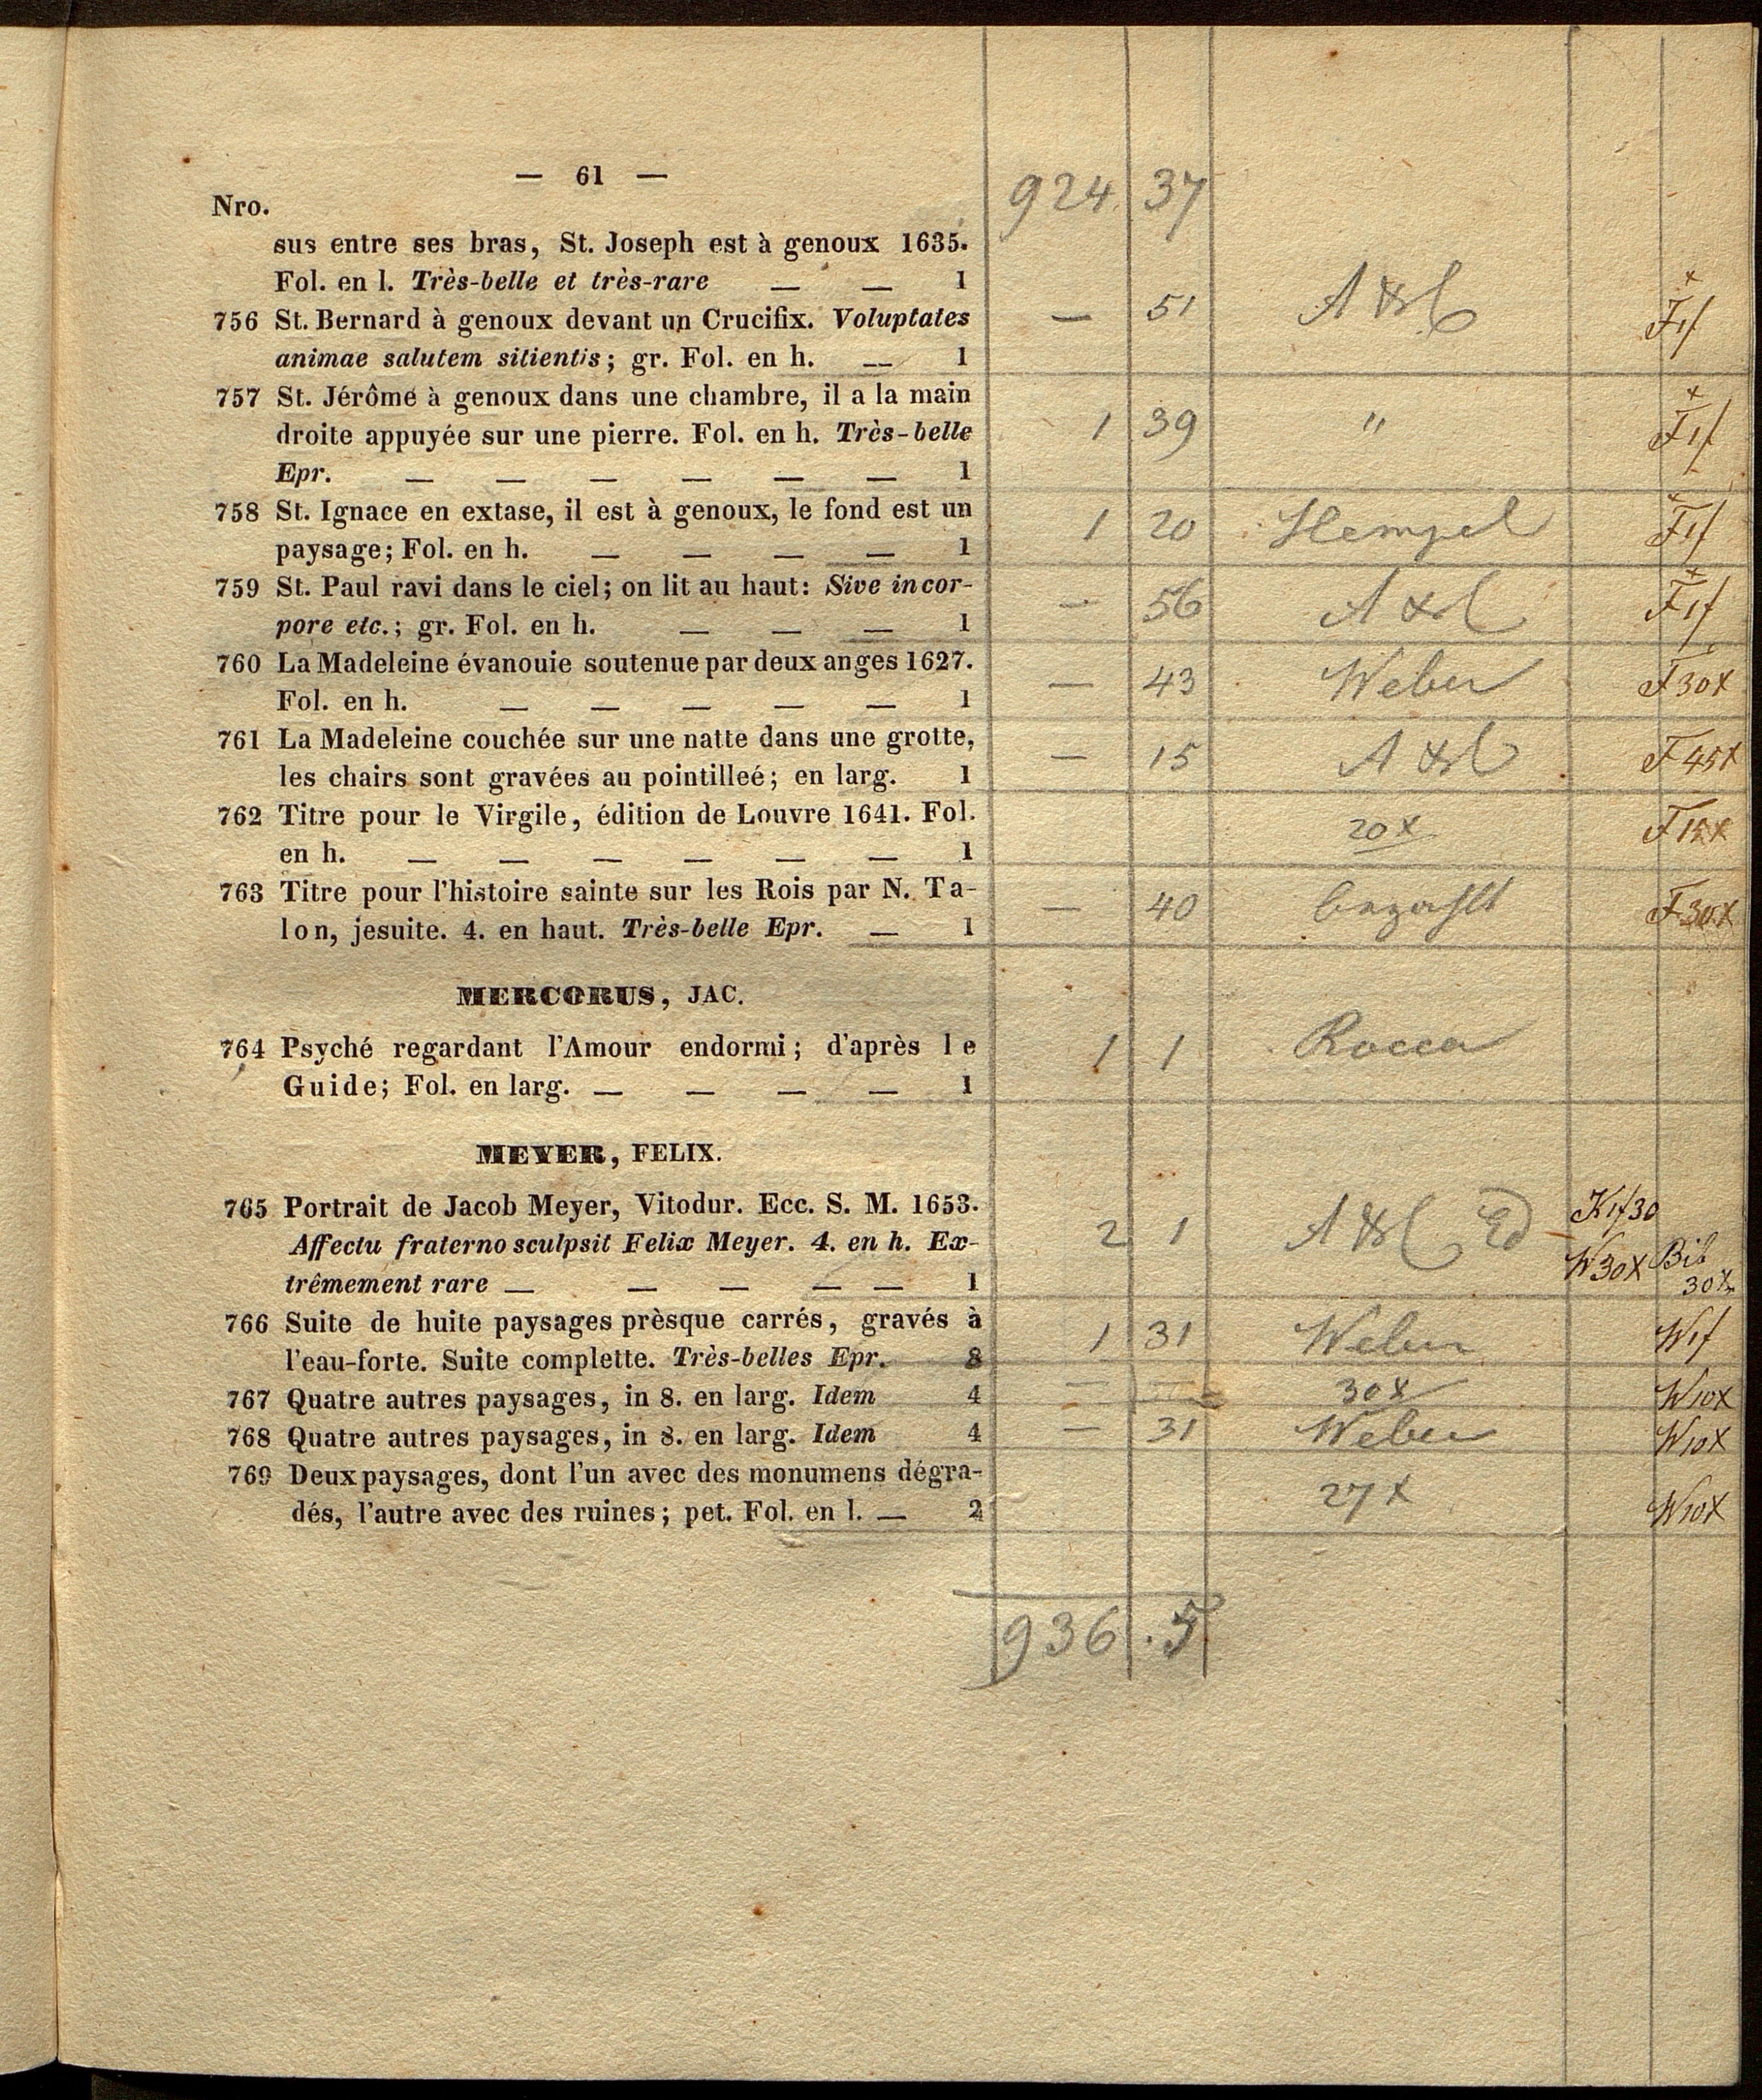 — 61 —
924. 37
Nro.
sus entre ses bras, St. Joseph est à genoux 1635.
Fol. en l. Très-belle et très-rare — — 1
756 St. Bernard à genoux devant un Crucifix. Voluptates
— 51
animae salutem sitientis; gr. Fol. en h. — 1
757 St. Jérôme à genoux dans une chambre, il a la main
droite appuyée sur une pierre. Fol. en h. Très-belle
1 39 "
Epr. — — — — — — 1
758 St. Ignace en extase, il est à genoux, le fond est un
1 20 Hempel
paysage; Fol. en h. — — — — 1
759 St. Paul ravi dans le ciel; on lit au haut: Sive incor-
— 56
pore etc.; gr. Fol. en h. — — — 1
760 La Madeleine évanouie soutenue par deux anges 1627.
— 43 Weber F 30x
Fol. en h. — — — — — 1
761 La Madeleine couchée sur une natte dans une grotte,
— 15 F 45x
les chairs sont gravées au pointilleé; en larg. 1
762 Titre pour le Virgile, édition de Louvre 1641. Fol.
20x
en h. — — — — — — 1
763 Titre pour l'histoire sainte sur les Rois par N. Ta-
— 40 bezahlt
lon, jesuite. 4. en haut. Très-belle Epr. — 1
MERCORUS, JAC.
764 Psyché regardant l'Amour endormi; d'après le
1 1 Rocca
Guide; Fol. en larg. — — — — 1
MEYER, FELIX.
765 Portrait de Jacob Meyer, Vitodur. Ecc. S. M. 1653.
K 1f 30
Affectu fraterno sculpsit Felix Meyer. 4. en h. Ex-
2 1
W 30x Bib 30x
trêmement rare — — — — — 1
766 Suite de huite paysages prèsque carrés, gravés à
1 31 Weber W 1f
l'eau-forte. Suite complette. Très-belles Epr. 8
767 Quatre autres paysages, in 8. en larg. Idem 4
— 30x W 10x
768 Quatre autres paysages, in 8. en larg. Idem 4
— 31 Weber W 10x
769 Deux paysages, dont l'un avec des monumens dégra-
27x
dés, l'autre avec des ruines; pet. Fol. en l. — 2
W 10x
936 . 5